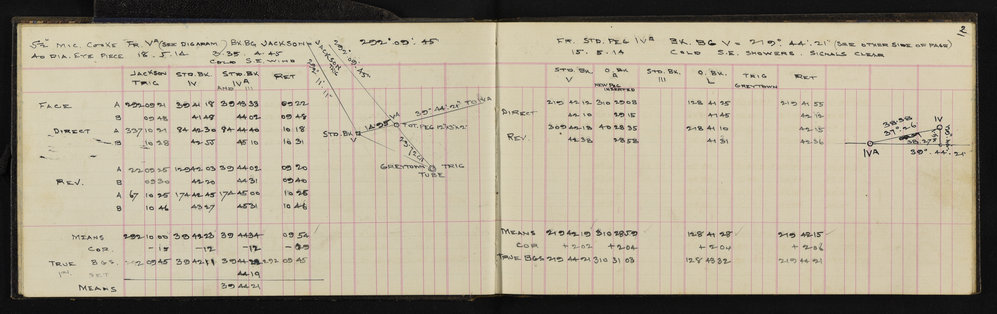 5½" MIC. COOKE FR. VA (SEE DIGARAM) BK.BG JACKSON = 292° 09' 45
40 DIA. EYE PIECE 18. 5. 14 3.35 4.45
COLD S.E. WIND
JACKSON TRIG STD. BK IV STD. BK IVA AND III RET
FACE A 292 09 21 39 41 18 39 43 33 09 22
B 09 48 41 48 44 02 09 48
DIRECT A 337 10 21 84 42 30 84 44 40 10 18
B 10 28 42 55 45 10 10 31
REV. A 22 09 25 129 42 03 39 44 02 09 20
B 09 30 42 20 44 31 09 40
A 67 10 25 174 42 45 174 45 00 10 25
B 10 46 43 27 45 31 10 46
MEANS 292 10 00 39 42 23 39 44 34 09 54
COR. - 15 - 12 - 12
TRUE BGS. 09 45 39 42 11 39 44 22 292 09 45
1st. SET 44 19
MEANS 39 44 21
JACKSON TRIG
292° 09' 45
STD. BK V
1495
VA
39° 44' 21" TO IVA
TOT. PEG
GREYTOWN TRIG TUBE
2
FR. STD. PEG IVA BK. BG V = 219° 44' 21" (SEE OTHER SIDE OF PAGE)
15. 5. 14 COLD S.E. SHOWERS. SIGNALS CLEAR
STD. BK. V O. BK A STD. BK. III O. BK. L TRIG GREYTOWN RET
NEW PEG INSERTED
DIRECT 219 42 12 310 29 08 128 41 25 219 41 55
42 10 29 15 41 45 42 12
REV. 309 42 13 40 28 35 218 41 10 42 15
42 38 28 58 41 31 42 36
MEANS 219 42 19 310 28 59 128 41 28 219 42 15
COR + 2 02 + 2 04 + 2 04 + 2 06
TRUE BGS 219 44 21 310 31 03 128 43 32 219 44 21
IV
38.38
37° 26
38.27
IVA 39° 44' 21"